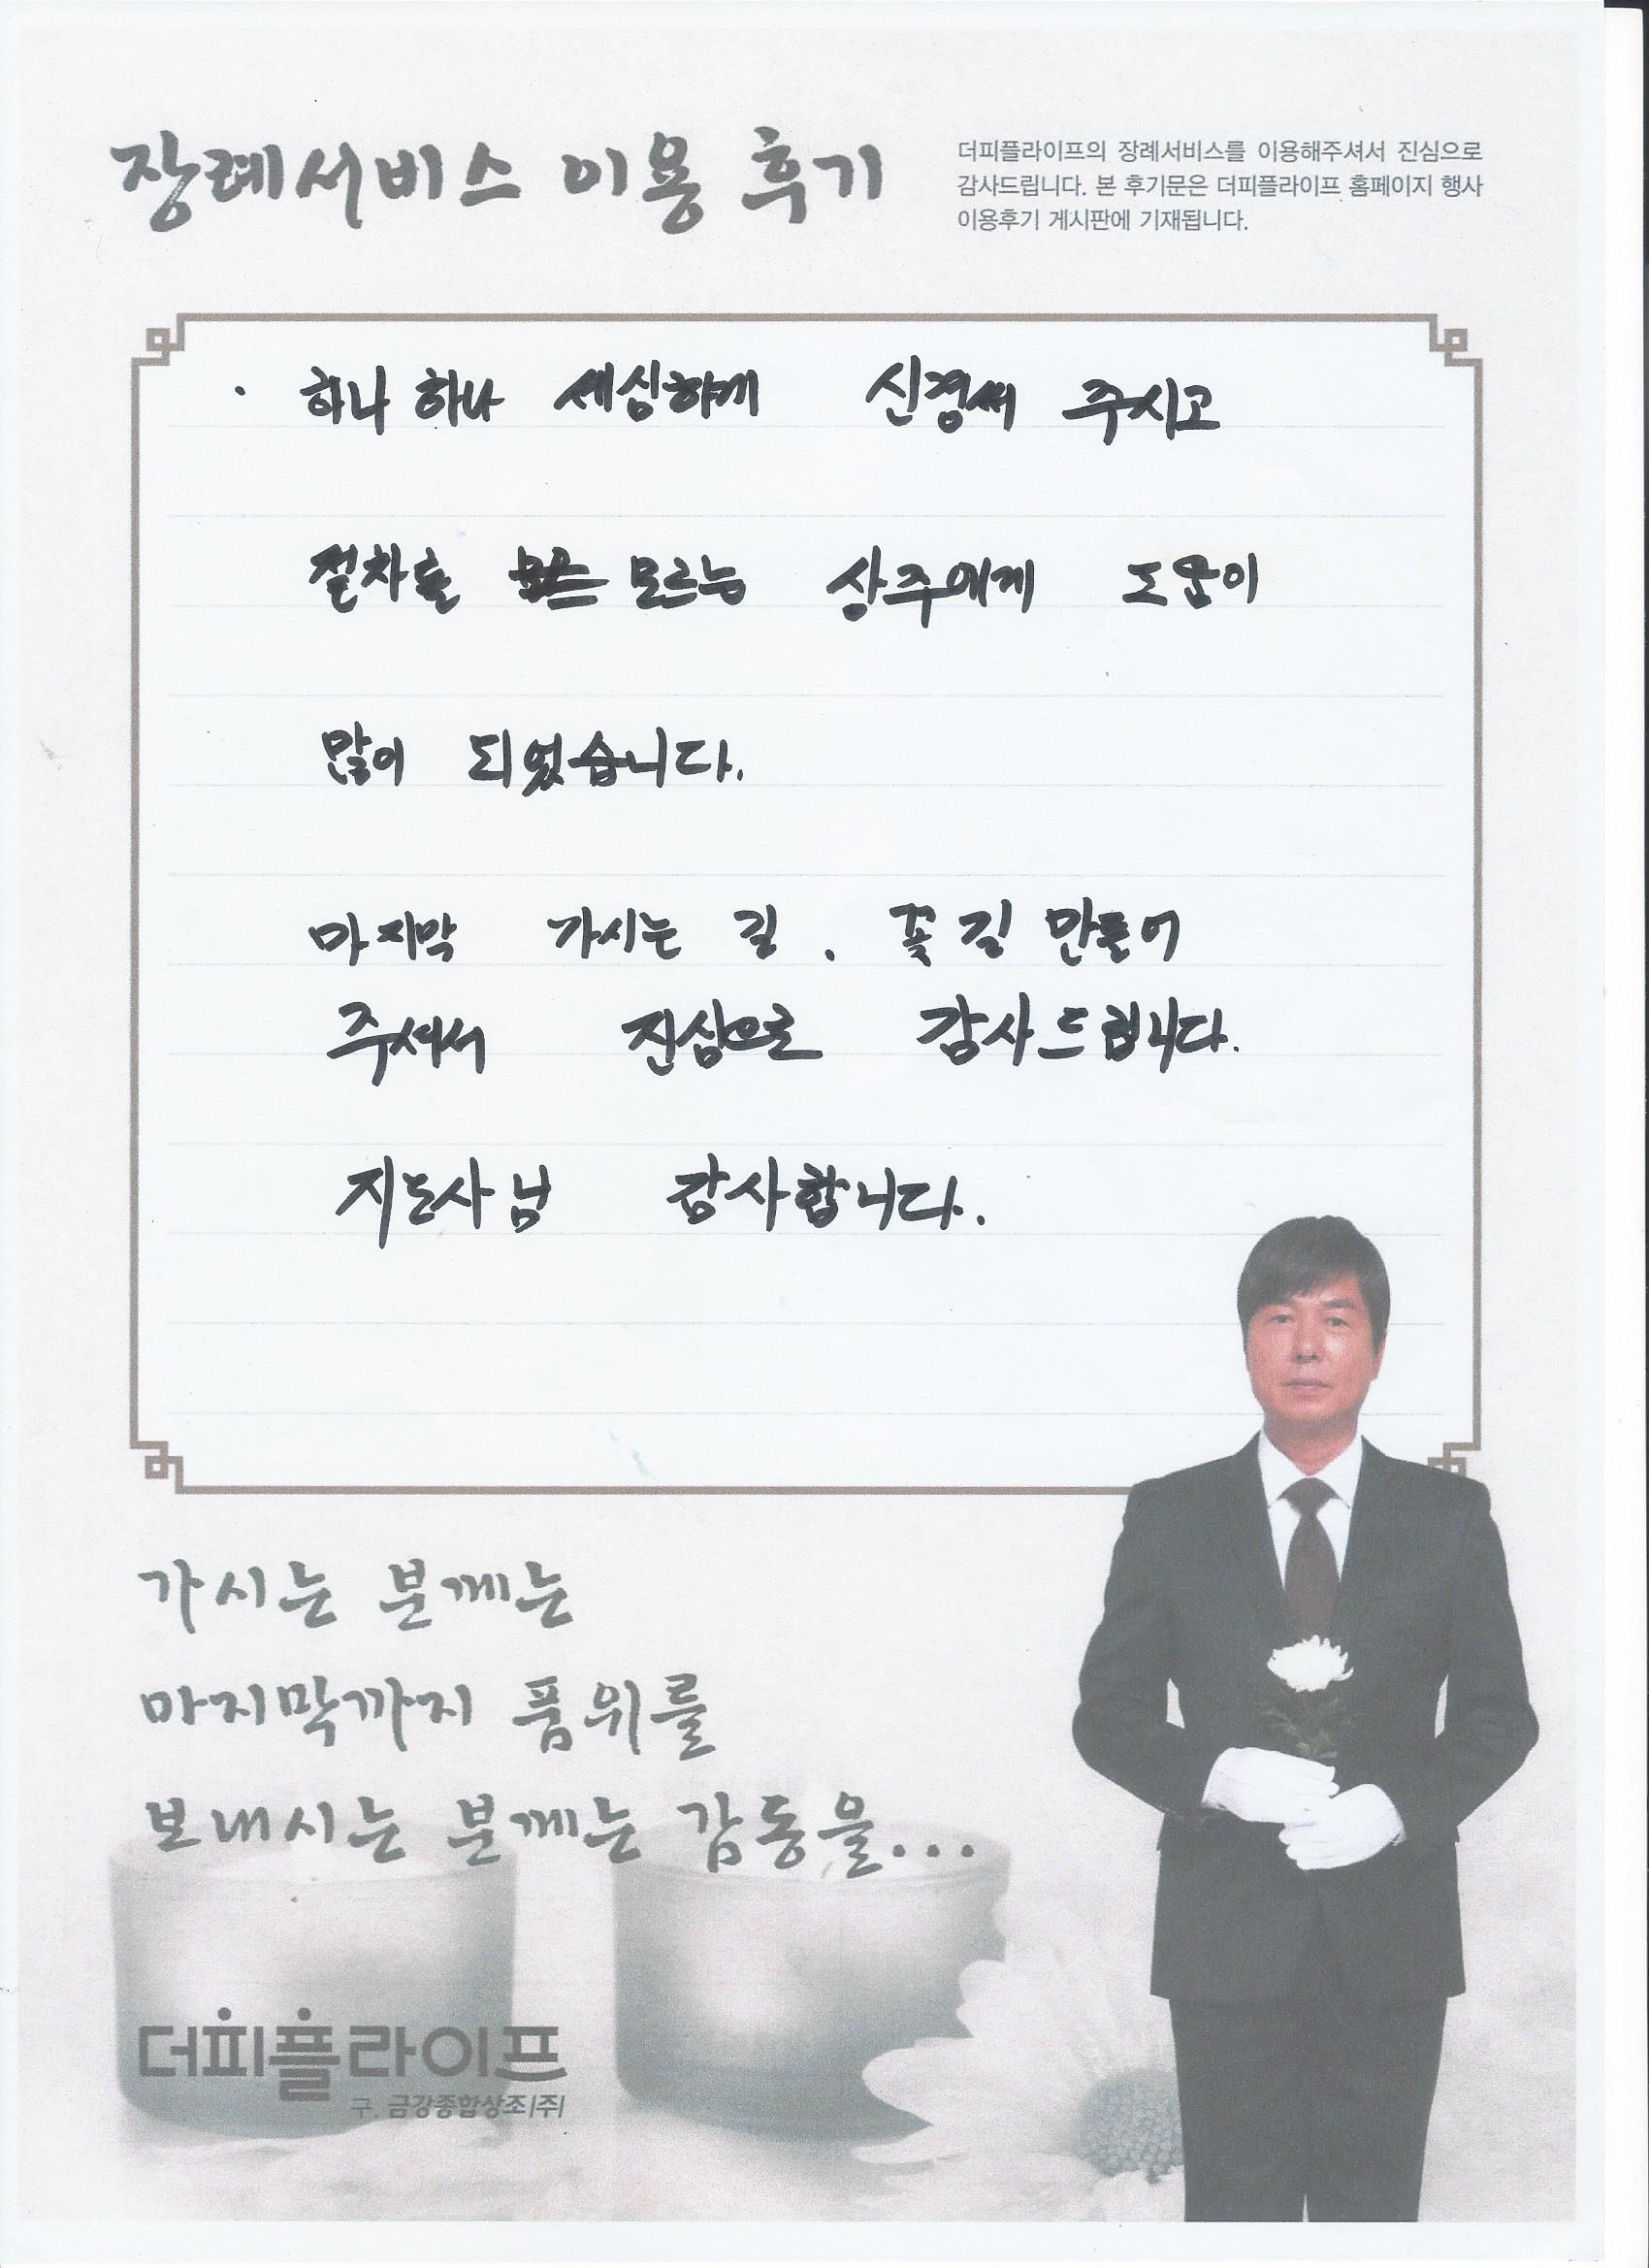 장례서비스 이용 후기
더피플라이프의 장례서비스를 이용해주셔서 진심으로
감사드립니다. 본 후기문은 더피플라이프 홈페이지 행사
이용후기 게시판에 기재됩니다.
· 하나 하나 세심하게 신경써 주시고
절차를 모르는 상주에게 도움이
많이 되었습니다.
마지막 가시는 길. 꽃길 만들어
주셔서 진심으로 감사드립니다.
지도사님 감사합니다.
가시는 분께는
마지막까지 품위를
보내시는 분께는 감동을...
더피플라이프
구. 금강종합상조(주)